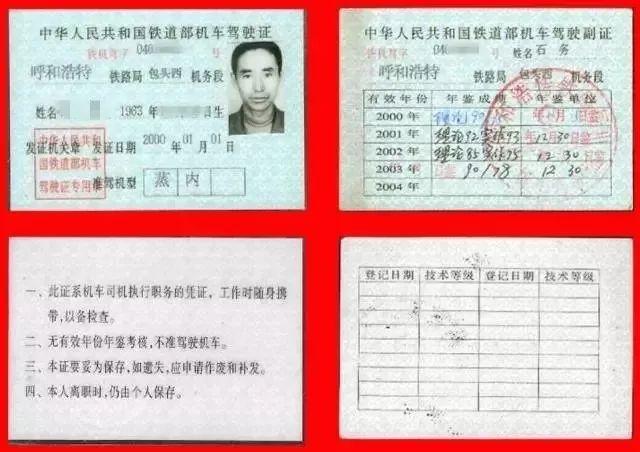 中华人民共和国铁道部机车驾驶证
铁机驾字 040
呼和浩特 铁路局 包头西 机务段
姓名 1963 年 生
发证机关章 发证日期 2000 年 01 月 01 日
中华人民共和
国铁道部机车
驾驶证专用章
准驾机型 蒸 内
中华人民共和国铁道部机车驾驶副证
铁机驾字 04 姓名 石务
呼和浩特 铁路局 包头西 机务段
有效年份 年鉴成绩 年鉴单位
2000 年 理论90
2001 年 理论92实作93 12 30
2002 年 理论85实作75 12 30
2003 年 90/78 12 30
2004 年
一、此证系机车司机执行职务的凭证，工作时随身携
带，以备检查。
二、无有效年份年鉴考核，不准驾驶机车。
三、本证要妥为保存，如遗失，应申请作废和补发。
四、本人离职时，仍由个人保存。
登记日期 技术等级 登记日期 技术等级